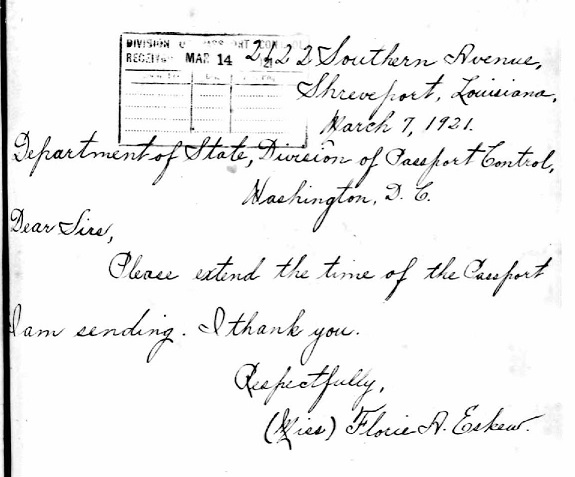 DIVISION OF PASSPORT CONTROL
RECEIVED MAR 14 21
2122 Southern Avenue,
Shreveport, Louisiana,
March 7, 1921.
Department of State, Division of Passport Control,
Washington, D. C.
Dear Sirs,
Please extend the time of the Passport
I am sending. I thank you.
Respectfully,
(Miss) Florie A. Eskew.